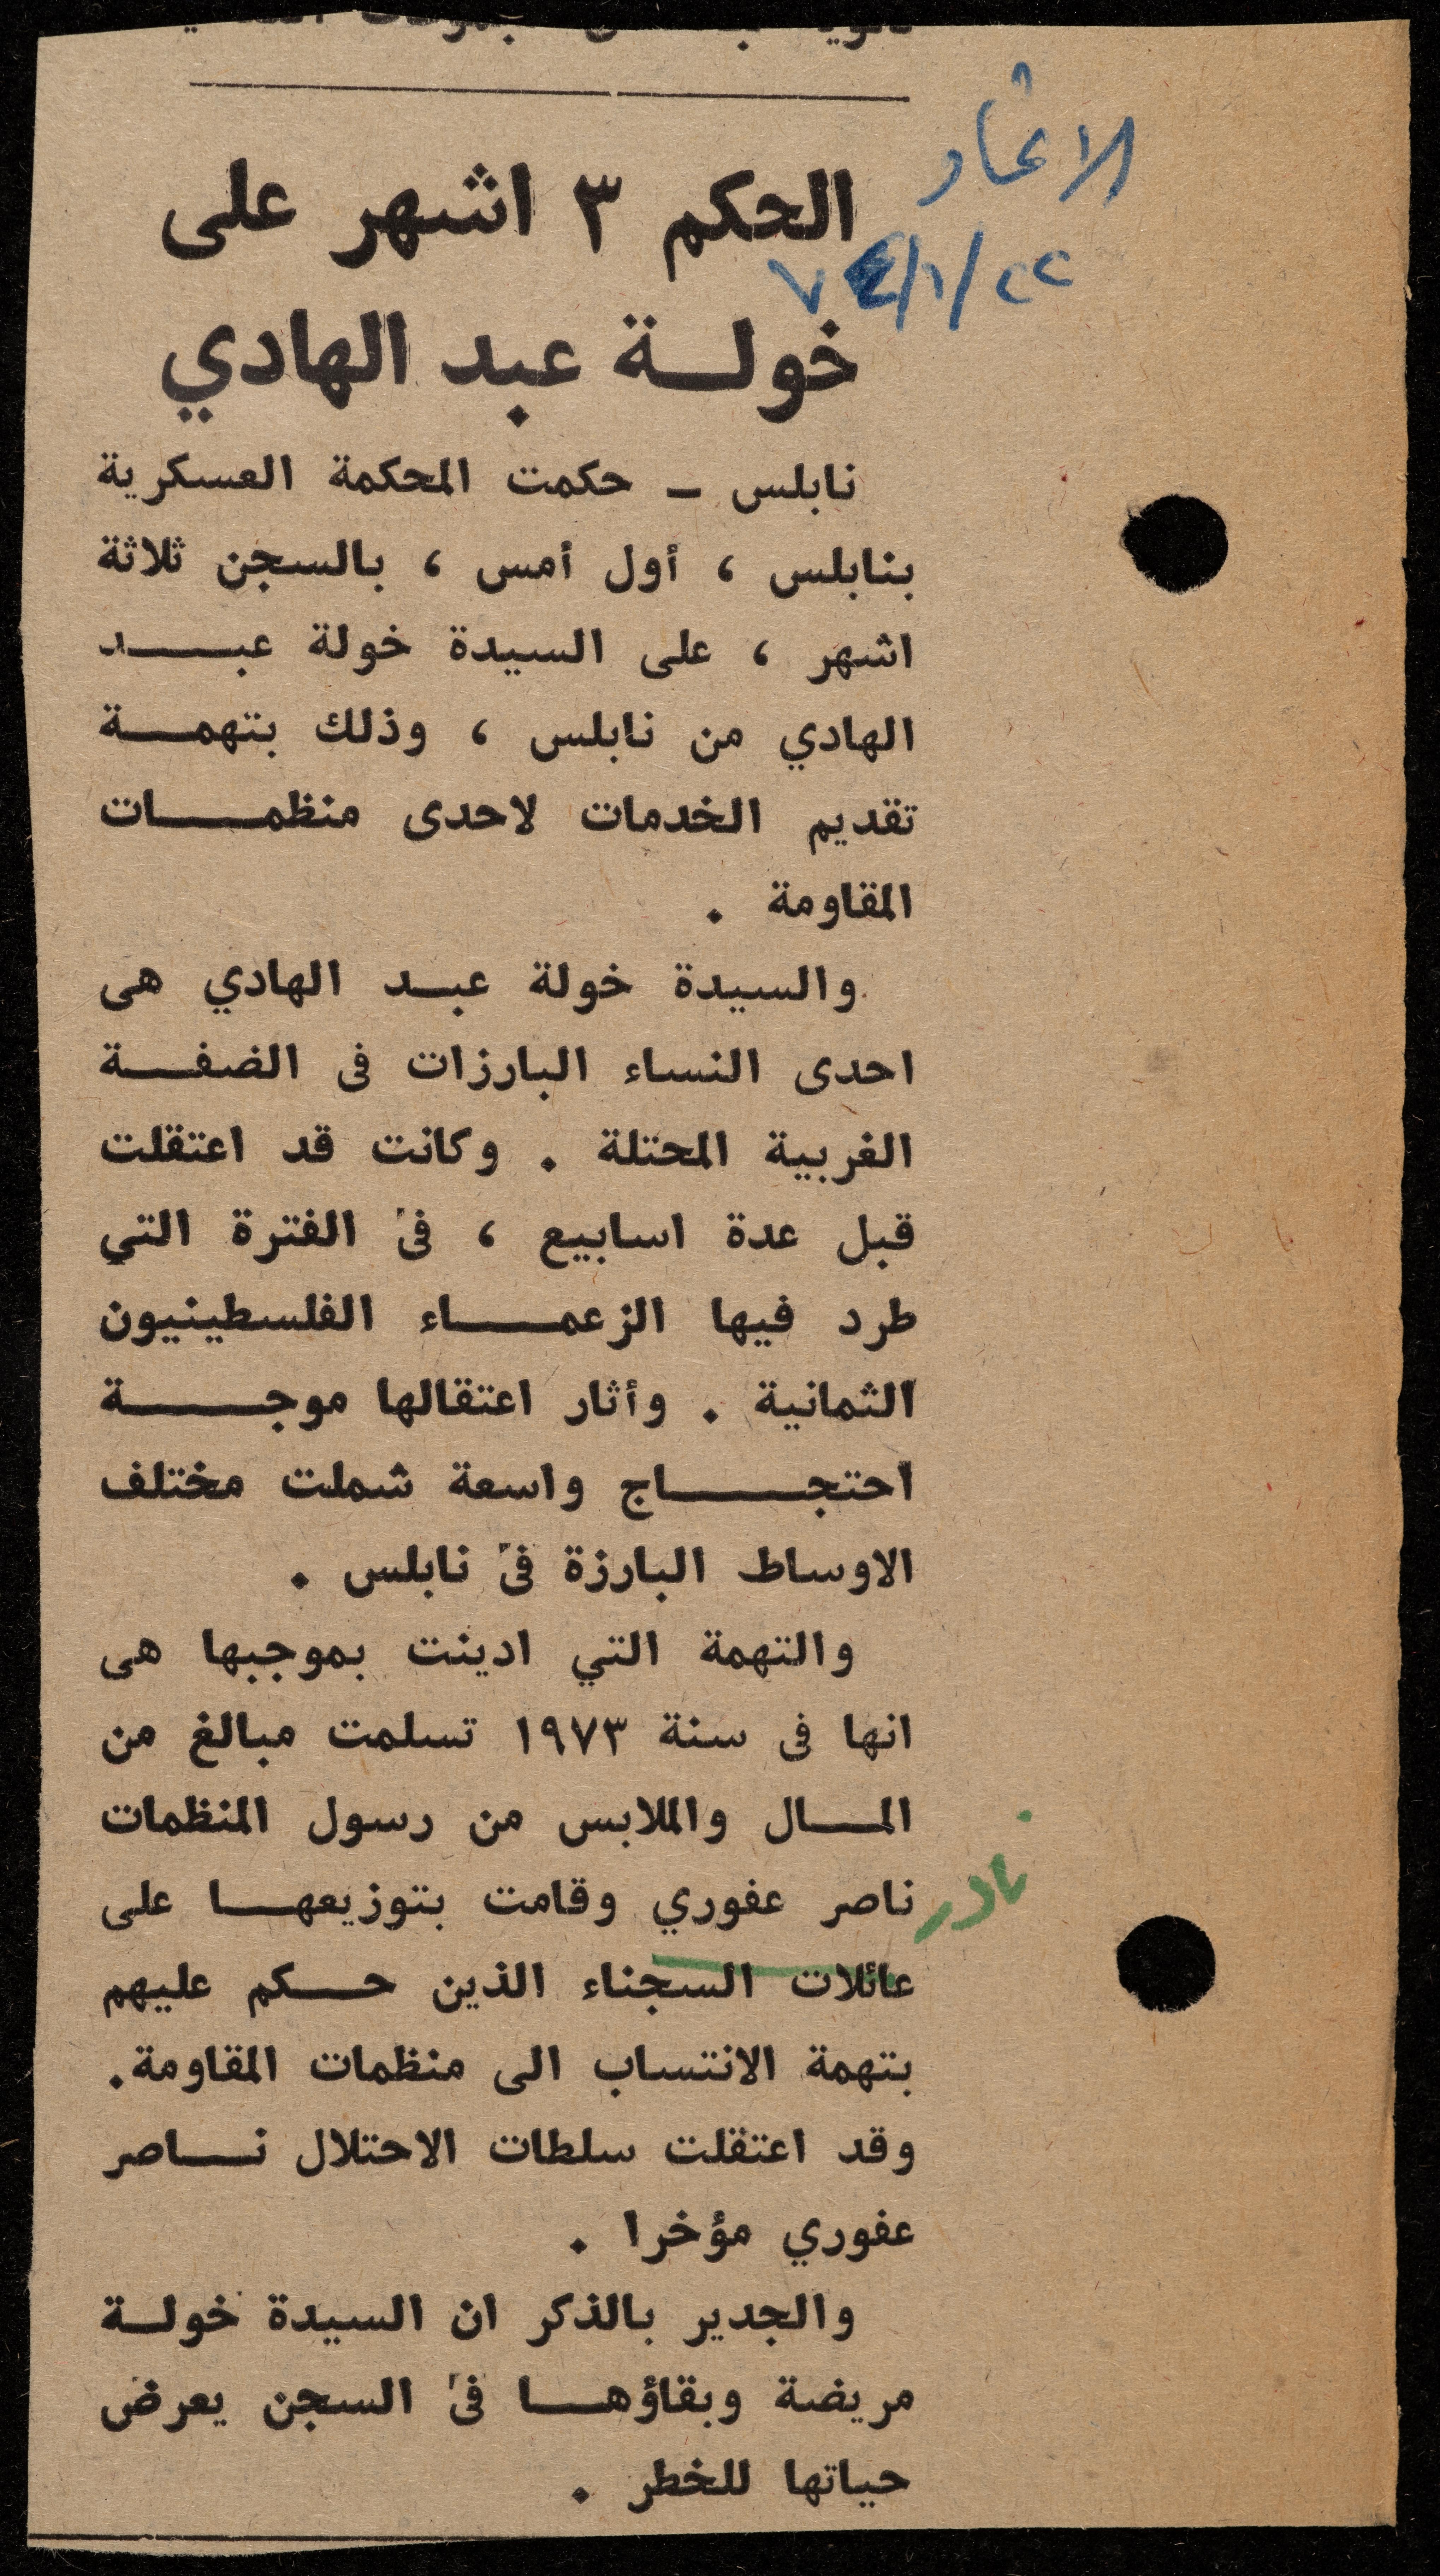 الاتحاد
٧٤/١/٢٢
الحكم ٣ اشهر على
خولة عبد الهادي
نابلس ـ حكمت المحكمة العسكرية
بنابلس ، أول أمس ، بالسجن ثلاثة
اشهر ، على السيدة خولة عبد
الهادي من نابلس ، وذلك بتهمة
تقديم الخدمات لاحدى منظمات
المقاومة .
والسيدة خولة عبد الهادي هى
احدى النساء البارزات فى الضفة
الغربية المحتلة . وكانت قد اعتقلت
قبل عدة اسابيع ، فى الفترة التي
طرد فيها الزعماء الفلسطينيون
الثمانية . وأثار اعتقالها موجة
احتجاج واسعة شملت مختلف
الاوساط البارزة فى نابلس .
والتهمة التي ادينت بموجبها هى
انها فى سنة ١٩٧٣ تسلمت مبالغ من
المال والملابس من رسول المنظمات
ناصر عفوري وقامت بتوزيعها على
نادر
عائلات السجناء الذين حكم عليهم
بتهمة الانتساب الى منظمات المقاومة.
وقد اعتقلت سلطات الاحتلال ناصر
عفوري مؤخرا .
والجدير بالذكر ان السيدة خولة
مريضة وبقاؤها فى السجن يعرض
حياتها للخطر .